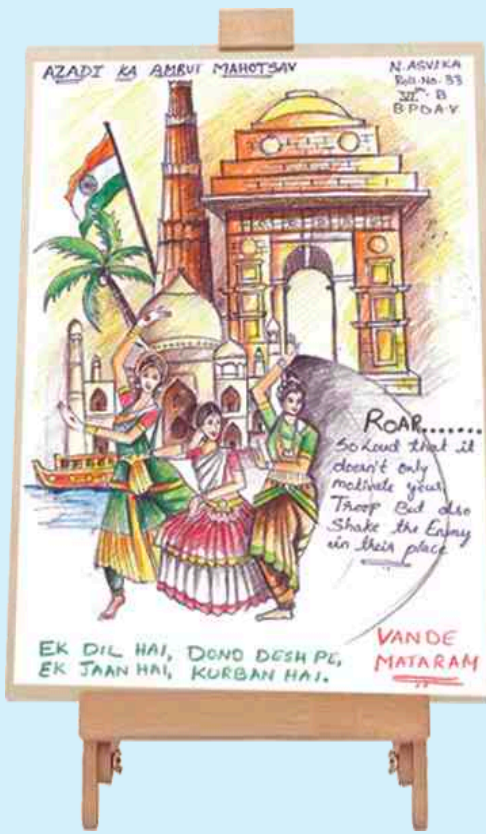 AZADI KA AMRUT MAHOTSAV
N. ASVIKA
Roll-No-33
VIᵗʰ-B
B P D A-V
ROAR.......
So Loud that it
doesn't only
motivate your
Troop But also
Shake the Enemy
in their place
EK DIL HAI, DONO DESH PE,
EK JAAN HAI, KURBAN HAI.
VANDE
MATARAM